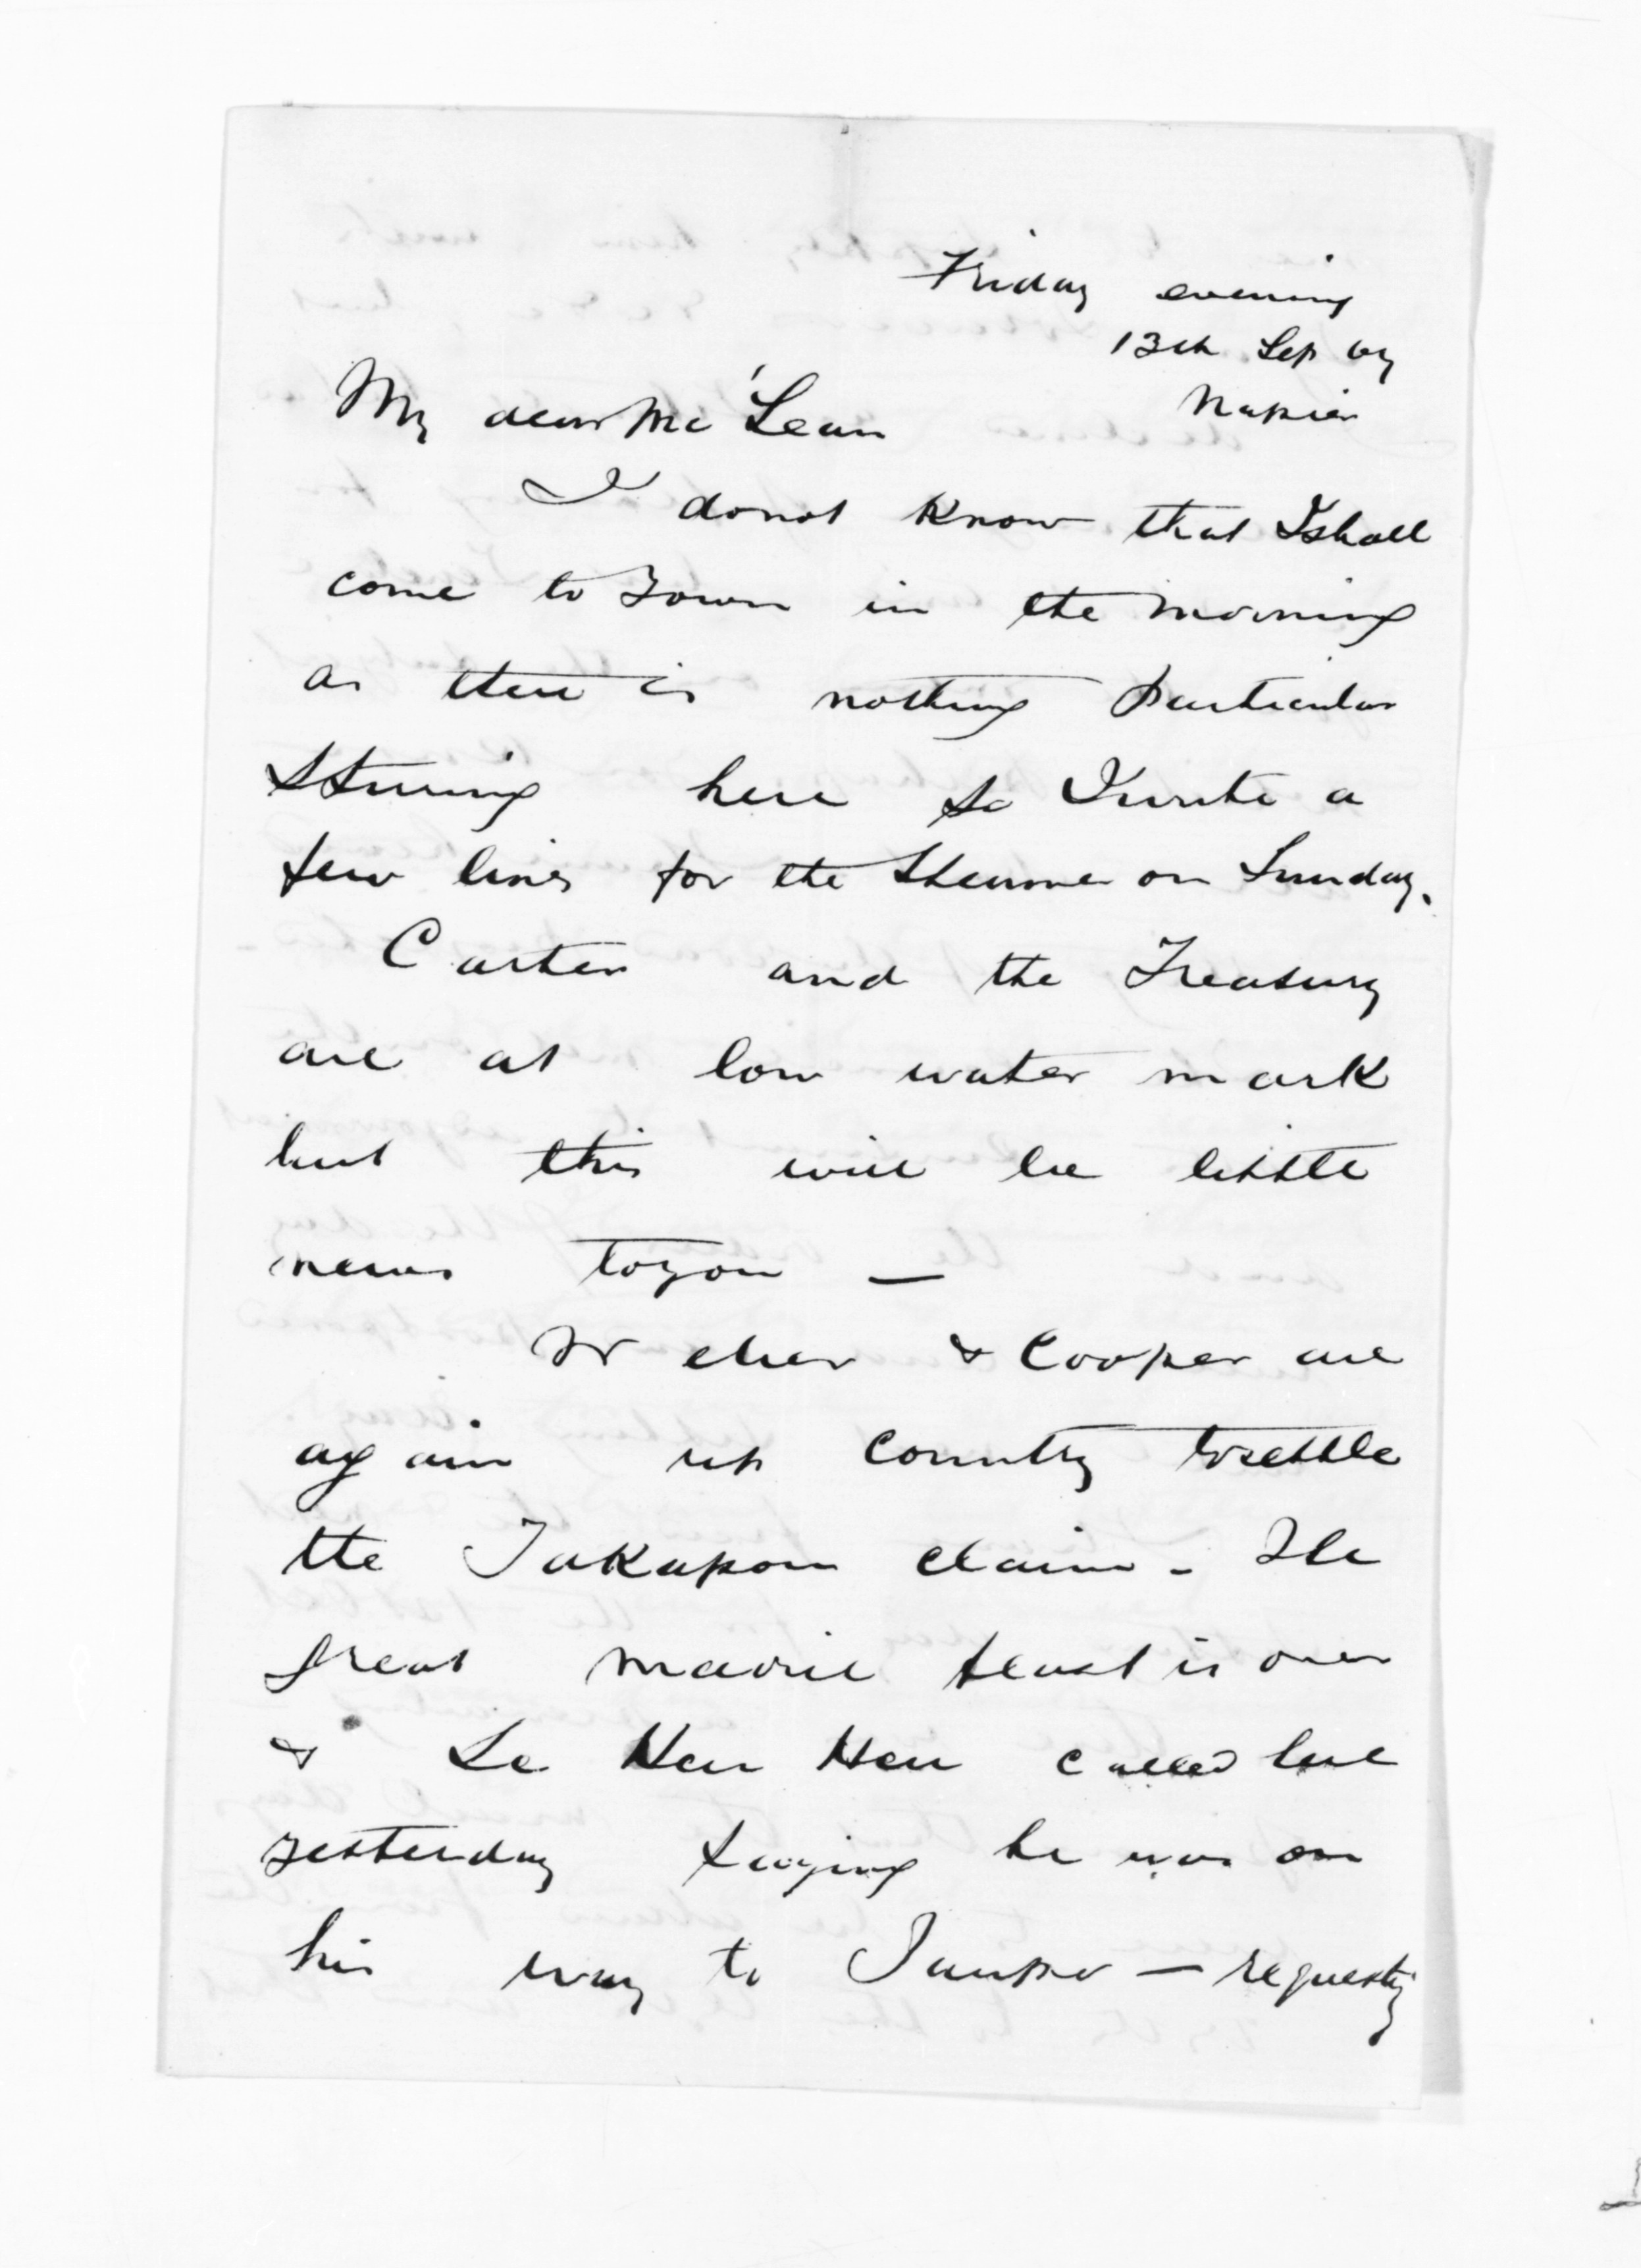 Friday evening
13th Sep 67
Napier
My dear McLean
I do not know that I shall
come to Town in the morning
as there is nothing particular
stirring here so I write a
few lines for the Steamer on Sunday.
Carter and the Treasury
are at low water mark
but this will be little
news to you —
Weber & Cooper are
again up country to settle
the Takapau claim - The
great maorie feast is over
& Te Heu Heu called here
yesterday saying he was on
his way to Taupo — requestg